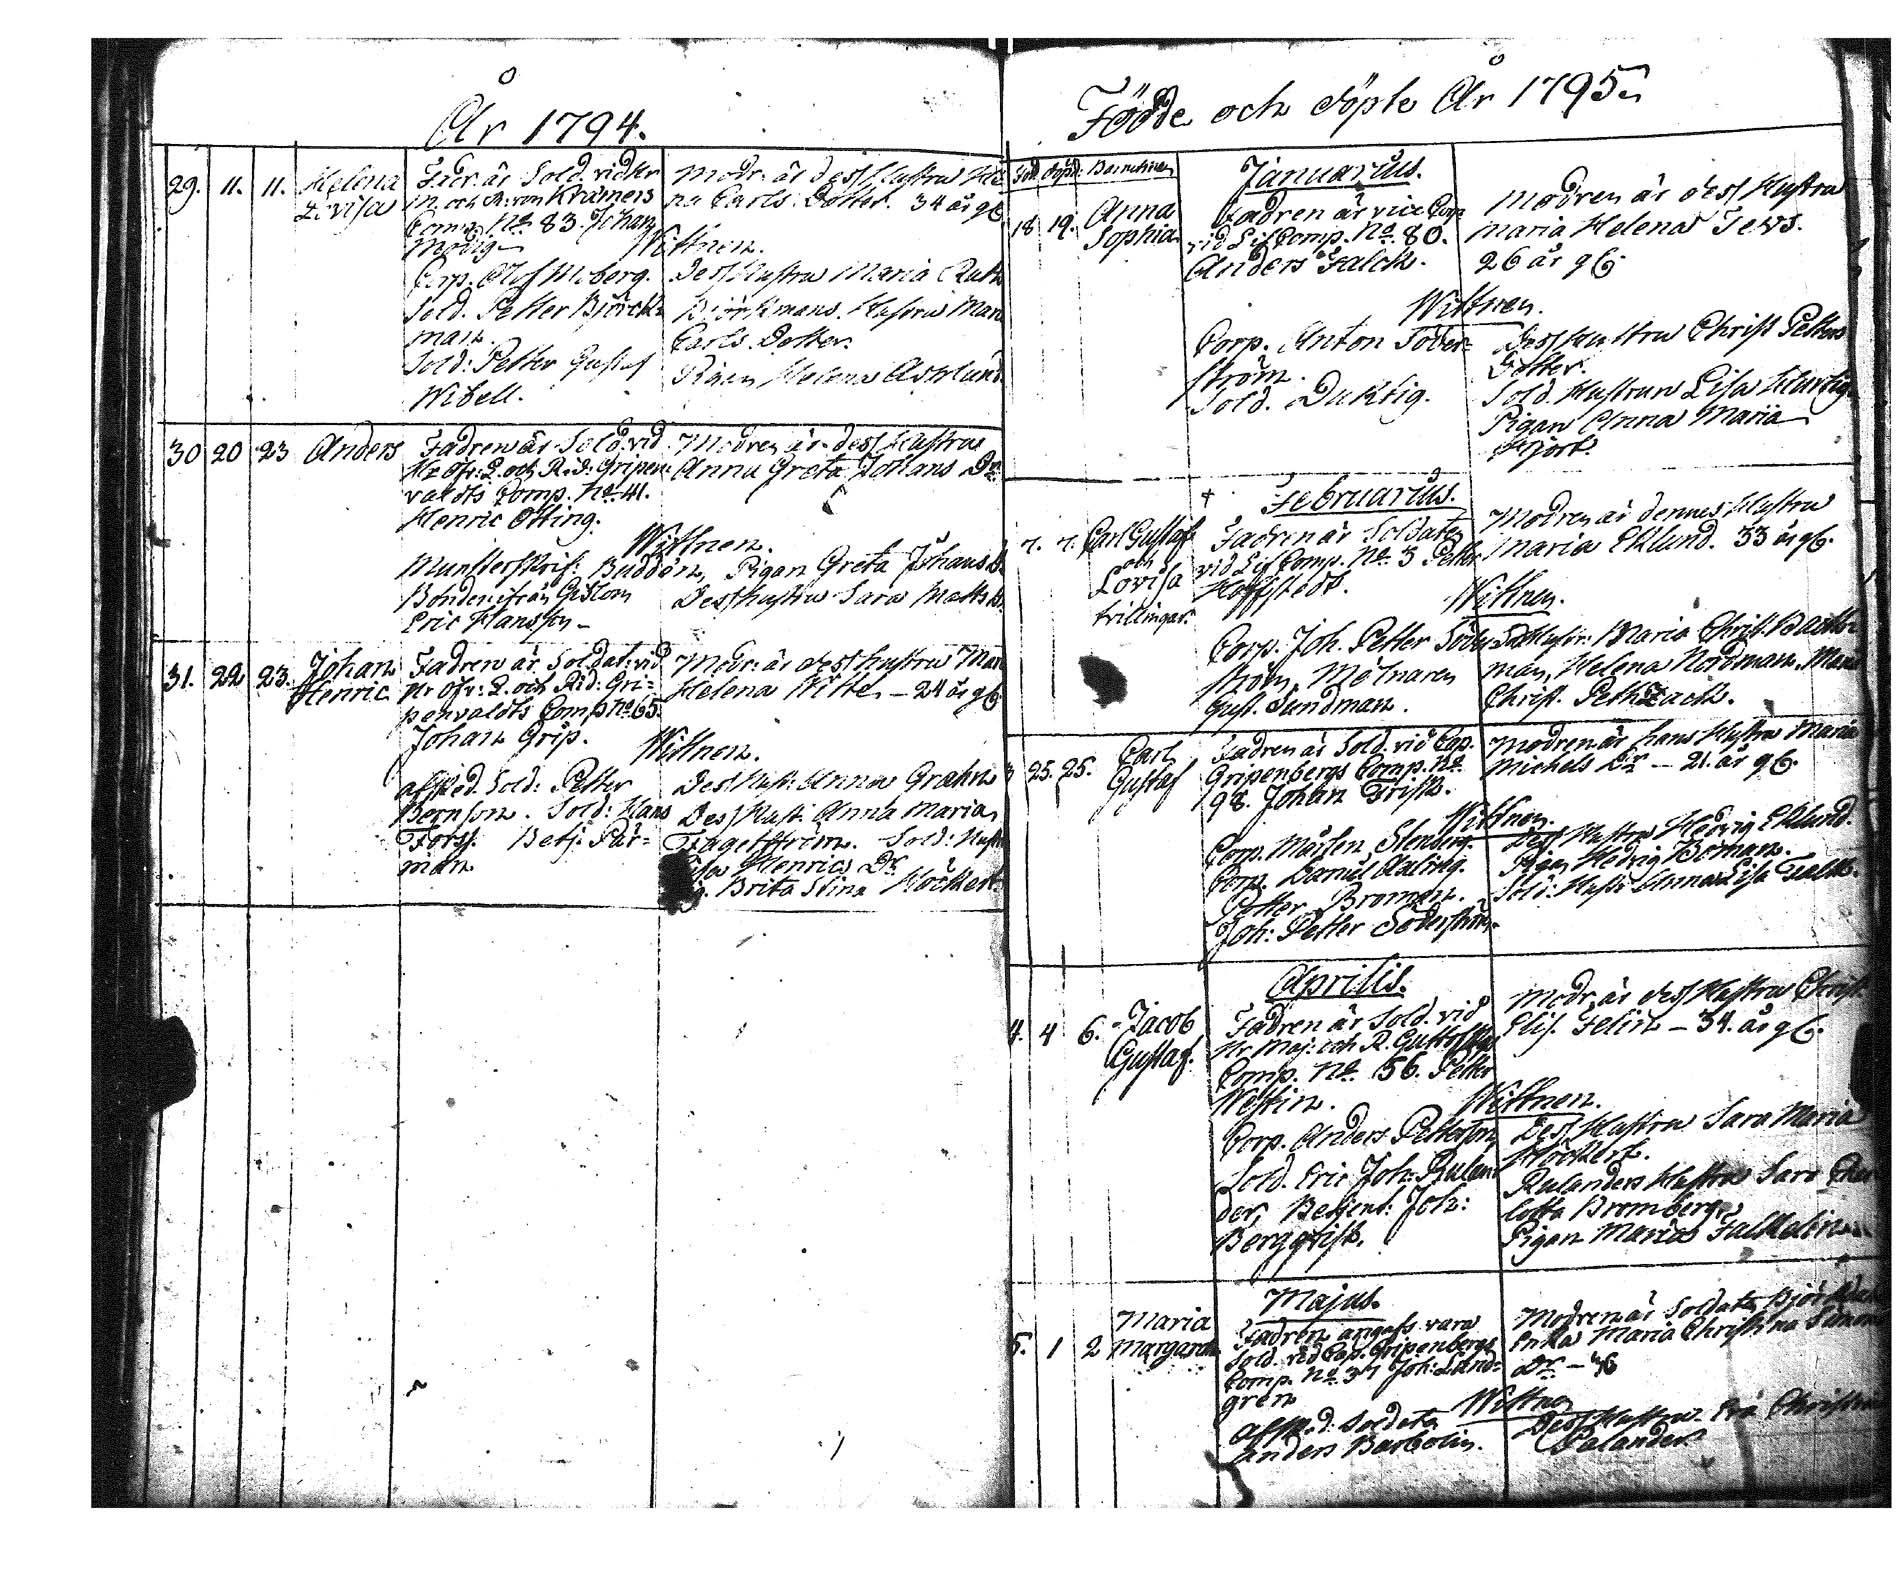 År 1794.
29. 11. 11. Helena Fadr. är Sold. vid Hr Modr. är dess Hustru Hele
Lovisa M. och R. von Kræmers na Carls Dotter. 34 år gl.
Comp. No 83. Johan
Modig
Wittnen.
Corp. Olof Moberg. Dess Hustru Maria
Sold. Petter Björck= Björkmans Hustru Mari
man. Carls Dotter.
Sold: Petter Gustaf Pigan Helena Asklund
Wibell.
30 20 23 Anders Fadren är Sold. vid Modren är dess Hustru
Hr Öfv: L. och R. d. Gripen= Anna Greta Johans Dr
valdts Comp. No 41.
Henric Otting.
Wittnen.
Munsterskrif: Buddén, Pigan Greta Johans D.
Bonden ifrån Dess hustru Sara Matts D.
Eric Hansson
31. 22 23. Johan Fadren är Soldat: vid Modr: är dess hustru Mar
Henric Hr Öfv: L. och Rid: Gri= Helena Witte – 24 år gl.
penvaldts Comp No 65.
Johan Grip.
Wittnen.
afsked. Sold: Petter Dess Hust: Anna Grahn
Bernson. Sold: Hans Dess Hust: Anna Maria
Forss. Betj: Pär= Fagerström. Sold: Hust
man Henrics Dr
Brita Stina Höckert
Födde och döpte År 1795.
Född. Döpt. Barnets namn
Januarius.
18 19. Anna Fadren är vice Corp. Modren är dess Hustru
Sophia vid Lif Comp. No. 80. Maria Helena Tews.
Anders Falck. 26 år gl.
Wittnen.
Corp. Anton Söder= Dess Hustru Christ Petters
ström. Dotter.
Sold. Duktig. Sold. Hustrun Lisa Hurtig.
Pigan Anna Maria
Hjort.
Februarius.
7. 7. Carl Gustaf Fadren är Soldaten Modren är dennes Hustru
och vid Lif Comp. No. 3 Petter Maria Eklund. 33 år gl.
Lovisa Hoffstedt.
tvillingar. Wittnen.
Corp. Joh. Petter Söder Sold Hustr: Maria Christ. Back=
ström, Mölnaren man, Helena Nordman, Mar
Gust. Sundman. Christ. Peth Zach.
3 25. 25. Carl Fadren är Sold. vid Cap. Modren är hans Hustru Maria
Gustaf Gripenbergs Comp. No Michels Dr – 21. år gl.
98. Johan Frisk.
Wittnen.
Corp. Mårten Stenberg. Dess Hustru Hedvig Eklund.
Corp. Daniel Pigan Hedvig Boman.
Petter Broman. Sold: Hustr Anna Lisa Falk.
Joh: Petter Söderström
Aprilis.
4. 4 6. Jacob Fadren är Sold. vid Modr. är dess Hustru Christ
Gustaf. Hr Maj: och R. Elis. Felin – 34. år gl.
Comp. No. 56. Petter
Westin. Wittnen.
Corp. Anders Petterson Dess Hustru Sara Maria
Sold. Eric Joh: Rulan Höckert.
der, Betjent: Joh: Rulanders Hustru Sara Char
Bergqvist. lotta Bromberg
Pigan Maria Falkelin
Majus.
5. 1 2 Maria Fadren angafs vara Modren är Soldaten
Margareta Sold. vid Cap. Gripenbergs Enka Maria Christina Simons
Comp. No. 37 Joh: Lind= Dr – 36
gren Wittnen
afsked. Soldaten Dess Hustru Eva Christina
Anders Barbolin. Palander